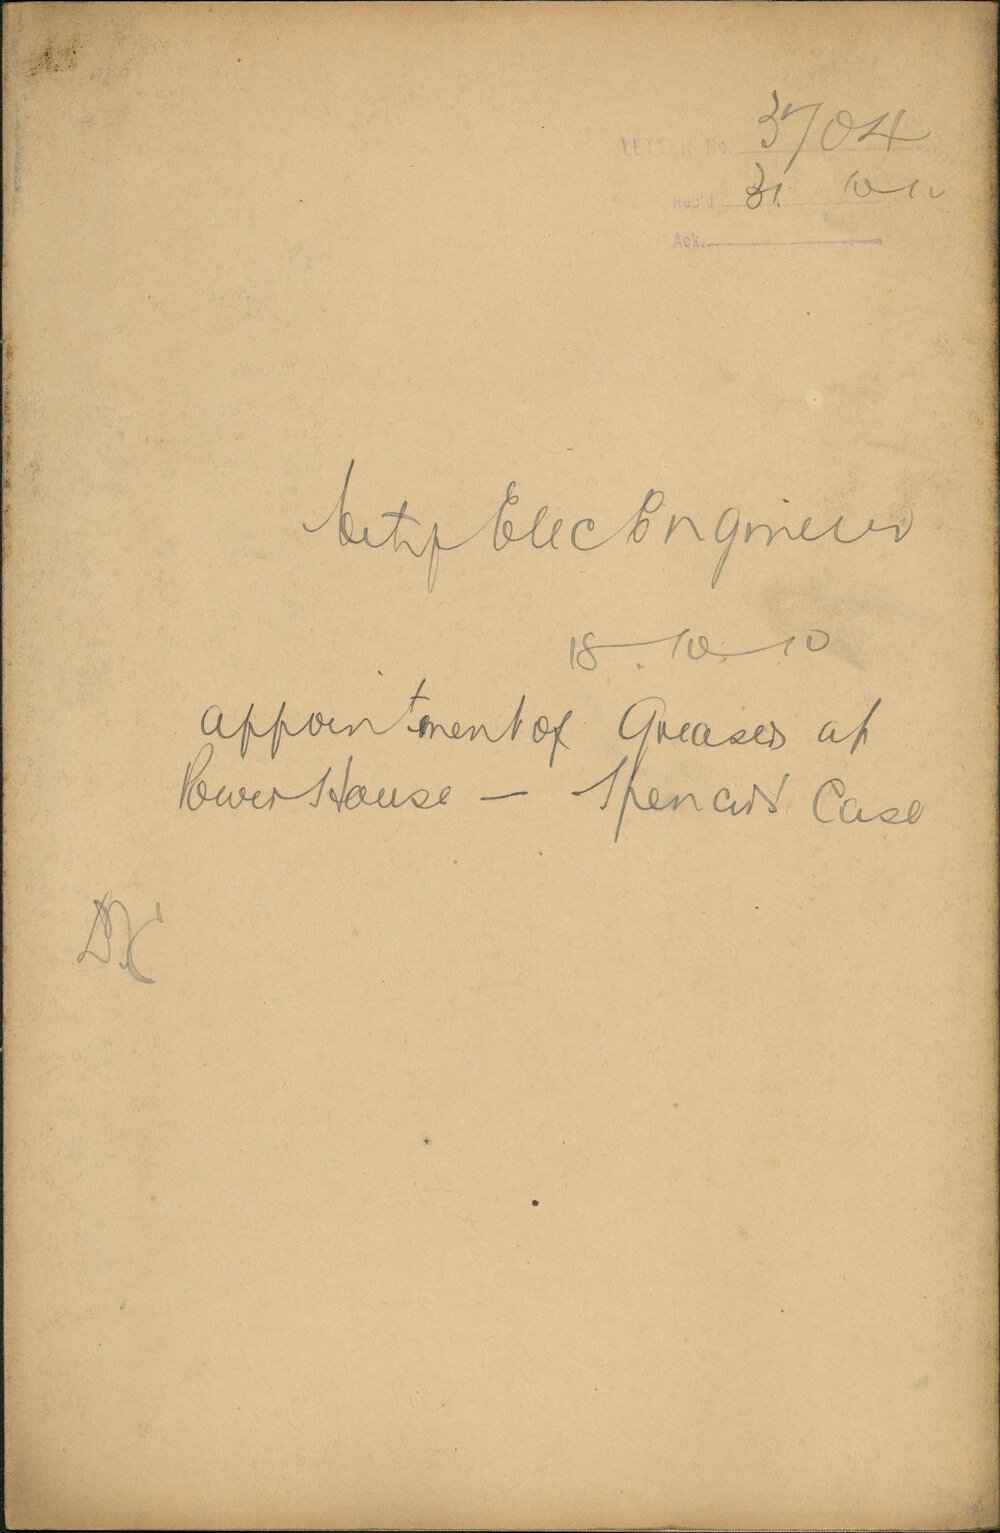 LETTER No. 3704
Rec'd 31. 10 10
Ack.
City Elec Engineer
18. 10. 10
appointment of Greaser at
Power House — Spencers Case